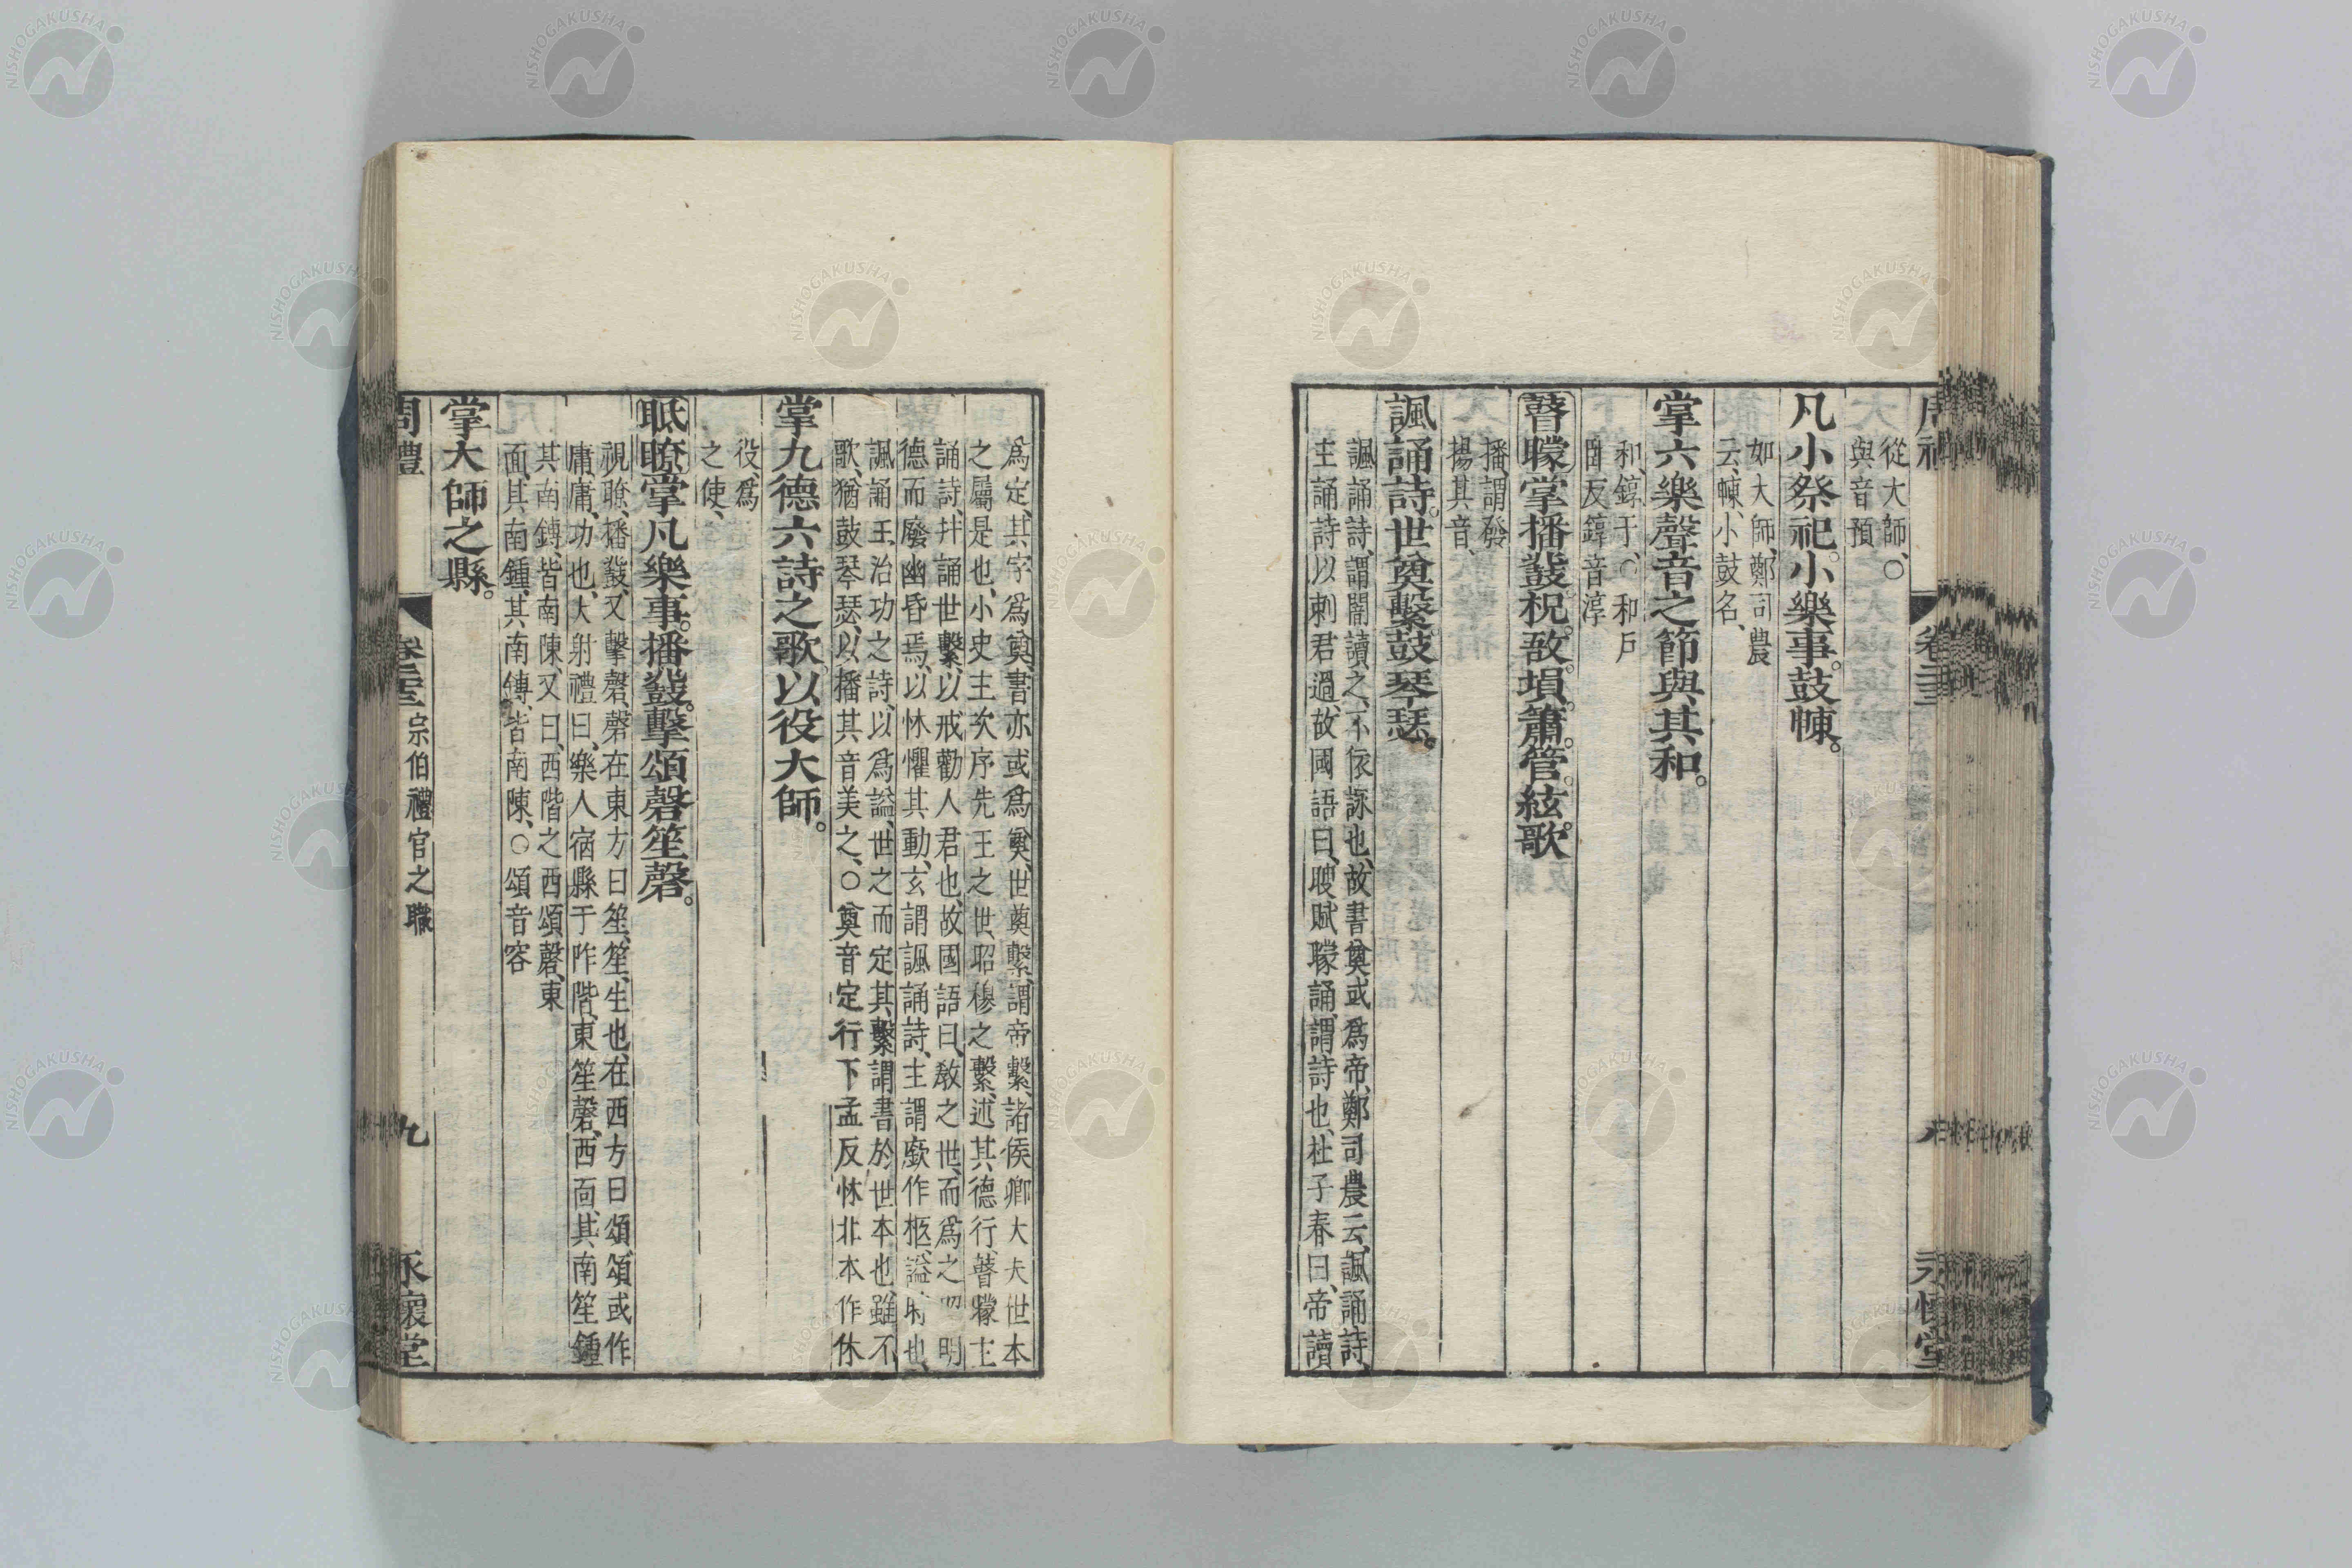 從大師、○
與音預
凡小祭祀。小樂事。鼓朄。
如大師、鄭司農
云、朄、小鼓名、
掌六樂聲音之節與其和。
和、錞于、○和戶
臥反錞音淳
瞽矇掌播鼗。柷。敔。塤。簫。管。絃歌。
播、謂發
揚其音、
諷誦詩。世奠繫。鼓琴瑟。
諷誦詩、謂闇讀之、不依詠也、故書奠或爲帝、鄭司農云、諷誦詩、
主誦詩以刺君過、故國語曰、瞍賦矇誦、謂詩也、杜子春曰、帝讀
爲定、其字爲奠、書亦或爲奠、世奠繫、謂帝繫、諸侯卿大夫世本
之屬是也、小史主次序先王之世、昭穆之繫、述其德行、瞽矇主
誦詩、幷誦世繫、以戒勸人君也、故國語曰、敎之世、而爲之 明
德而廢幽昏焉、以怵懼其動、玄謂諷誦詩、主謂廞作柩、謚時也
諷誦王治功之詩、以爲謚、世之而定其繫、謂書於世本也、雖不
歌、猶鼓琴瑟、以播其音美之、○奠音定行下孟反怵北本作休
掌九德六詩之歌。以役大師。
役、爲
之使、
眡瞭掌凡樂事。播鼗。擊頌磬笙磬。
視瞭、播鼗、又擊磬、磬在東方曰笙、笙、生也、在西方曰頌、頌或作
庸、庸、功也、大射禮曰、樂人宿縣于阼階、東笙磬、西面、其南笙鍾
其南鏄、皆南陳、又曰、西階之西頌磬、東
面、其南鍾、其南鏄、皆南陳、○頌音容
掌大師之縣。
周禮
卷二十三
宗伯禮官之職
九
永懷堂